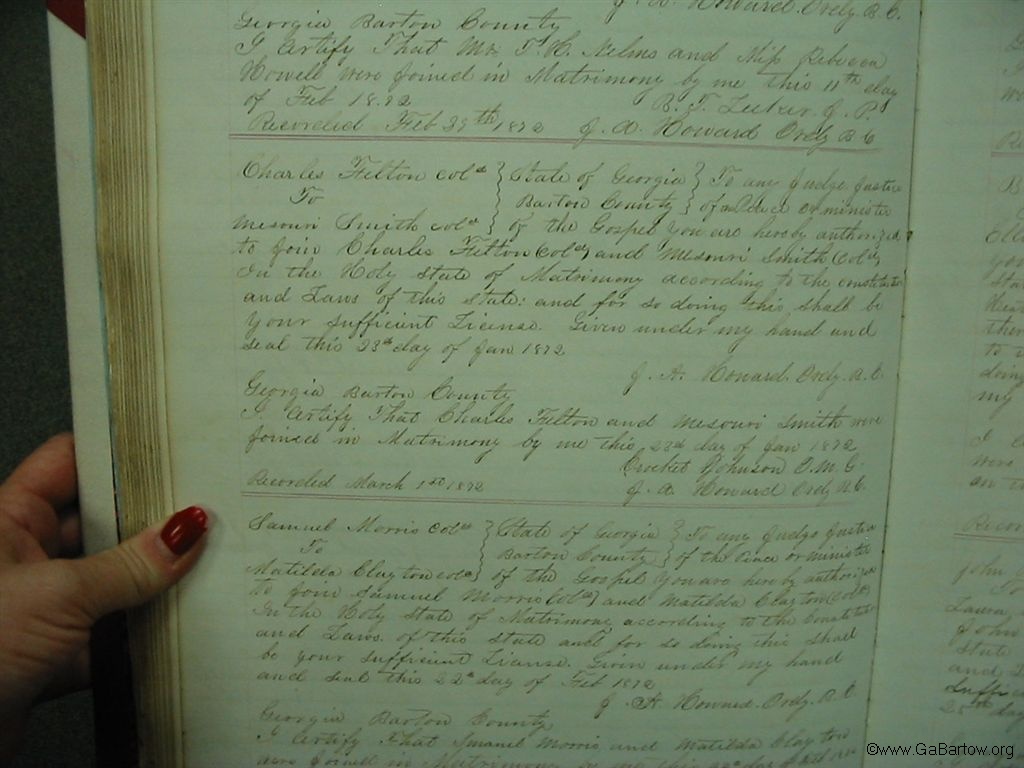 J. A. Howard Ordy B. C.
Georgia Barton County
I Certify That Mr T. H. Nelms and Miss Rebecca
Howell were joined in Matrimony by me this 11th day
of Feb 1872 B. T. Leeker J. P.
Recorded Feb 29th 1872 J. A. Howard Ordy B C
Charles Felton cold } State of Georgia } To any Judge Justice
To Barton County } of Peace or minister
Mesouri Smith cold } of the Gospel you are hereby authorized
to join Charles Felton (Cold) and Mesouri Smith (Cold)
In the Holy state of Matrimony according to the constitution
and Laws of this state: and for so doing this shall be
your sufficient License. Given under my hand and
seal this 23d day of Jan 1872
J. A. Howard Ordy B. C.
Georgia Barton County
I Certify That Charles Felton and Mesouri Smith were
joined in Matrimony by me this 23d day of Jan 1872
Crocket Johnson O. M. G.
Recorded March 1st 1872 J. A. Howard Ordy B. C.
Samuel Morris Cold } State of Georgia } To any Judge Justice
To Barton County } of the Peace or minister
Matilda Clayton cold } of the Gospel you are hereby authorized
to join Samuel Morris (Cold) and Matilda Clayton (Cold)
In the Holy state of Matrimony according to the Constitution
and Laws of this state and for so doing this shall
be your sufficient License. Given under my hand
and seal this 22d day of Feb 1872
J. A. Howard Ordy. B. C.
Georgia Barton County,
I Certify That Samuel Morris and Matilda Clayton
were joined in Matrimony by me this 22d day of
©www.GaBartow.org